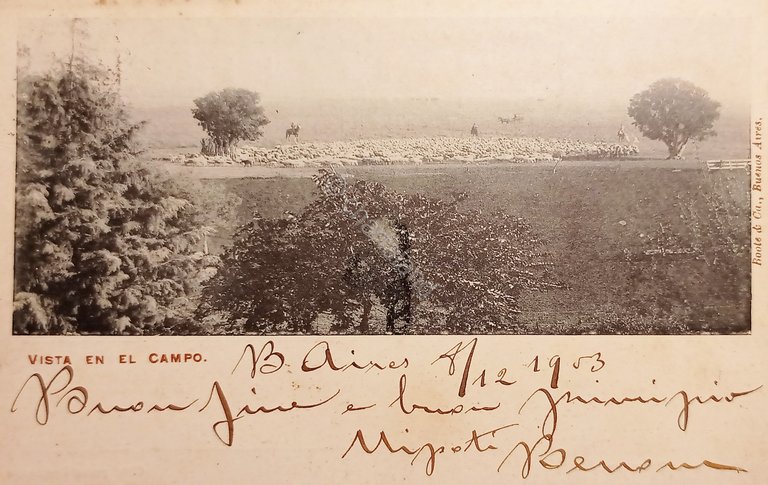 VISTA EN EL CAMPO.
B Aires 8/12 1903
Buon fine e buon principio
Nipoti
Boote & Ca., Buenos Aires.